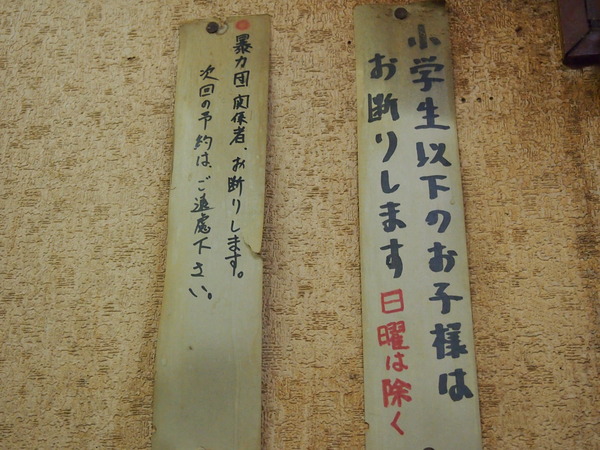 小学生以下のお子様は
お断りします 日曜は除く
暴力団関係者、お断りします。
次回の予約は、ご遠慮下さい。